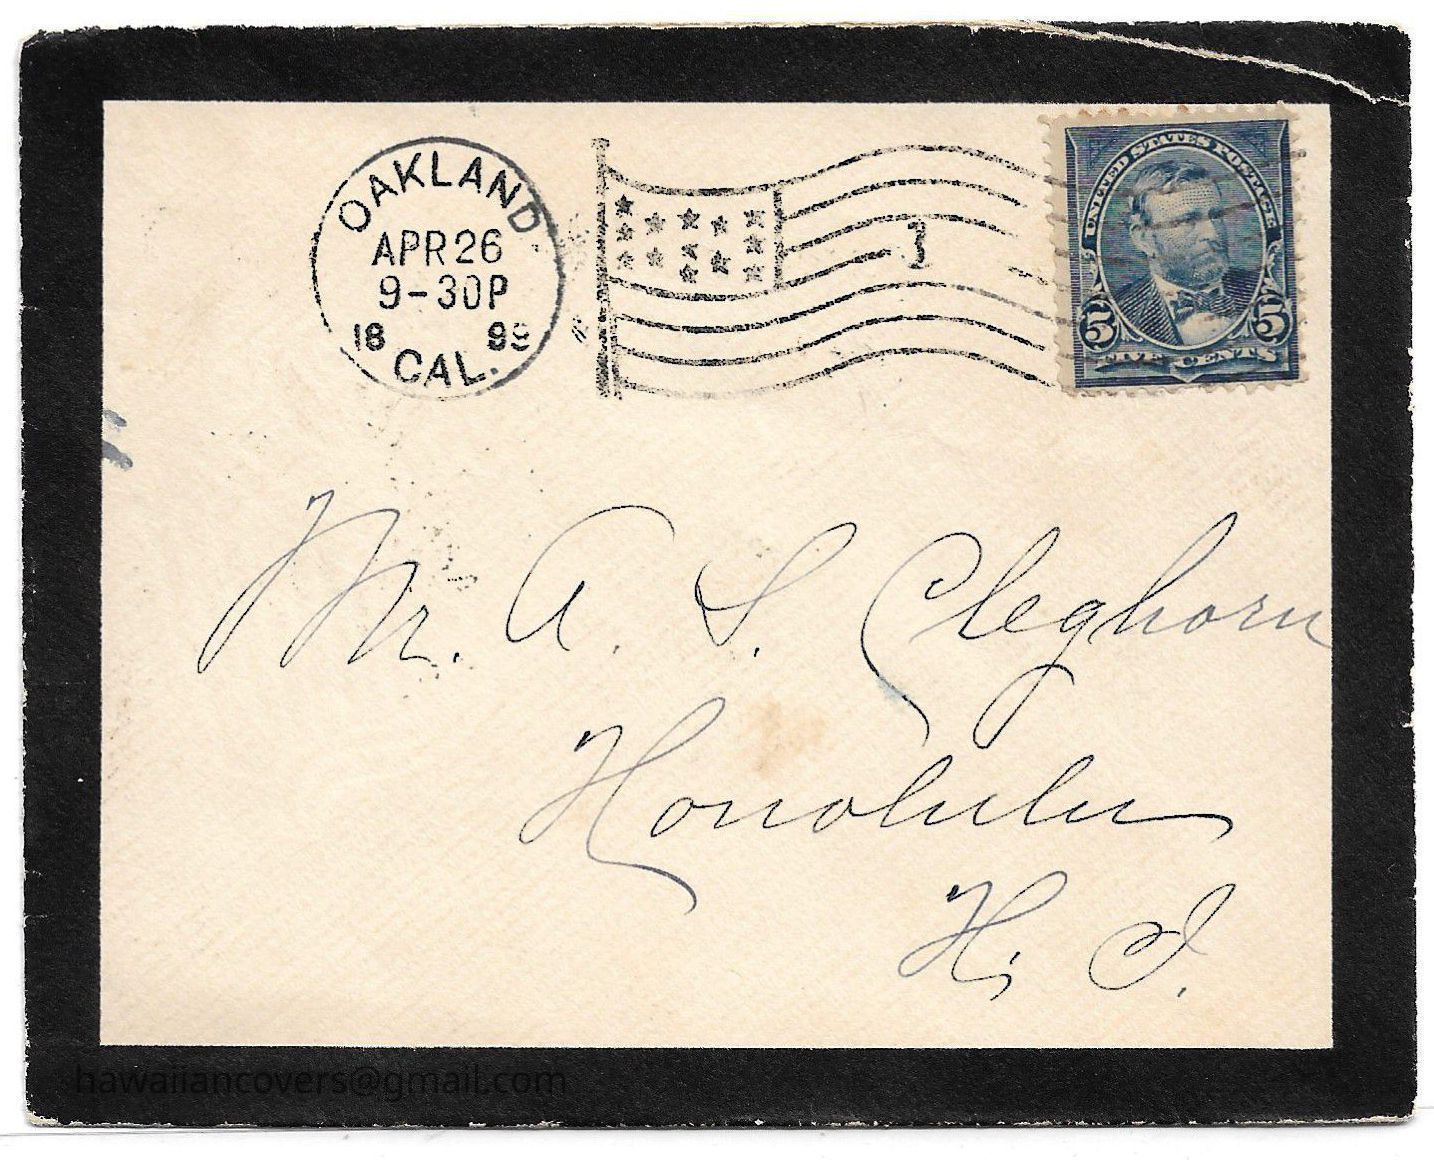 OAKLAND.
APR 26
9-30P
1899
CAL.
1
UNITED STATES POSTAGE
5 5
FIVE CENTS
Mr. A. S. Cleghorn
Honolulu
H. I.
hawaiiancovers@gmail.com